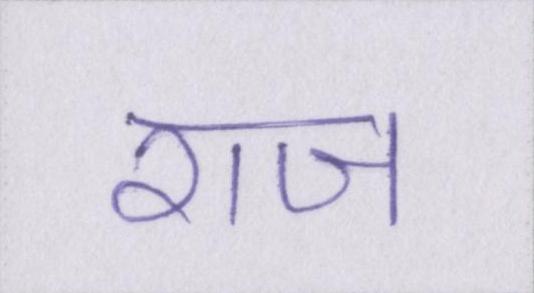 राज